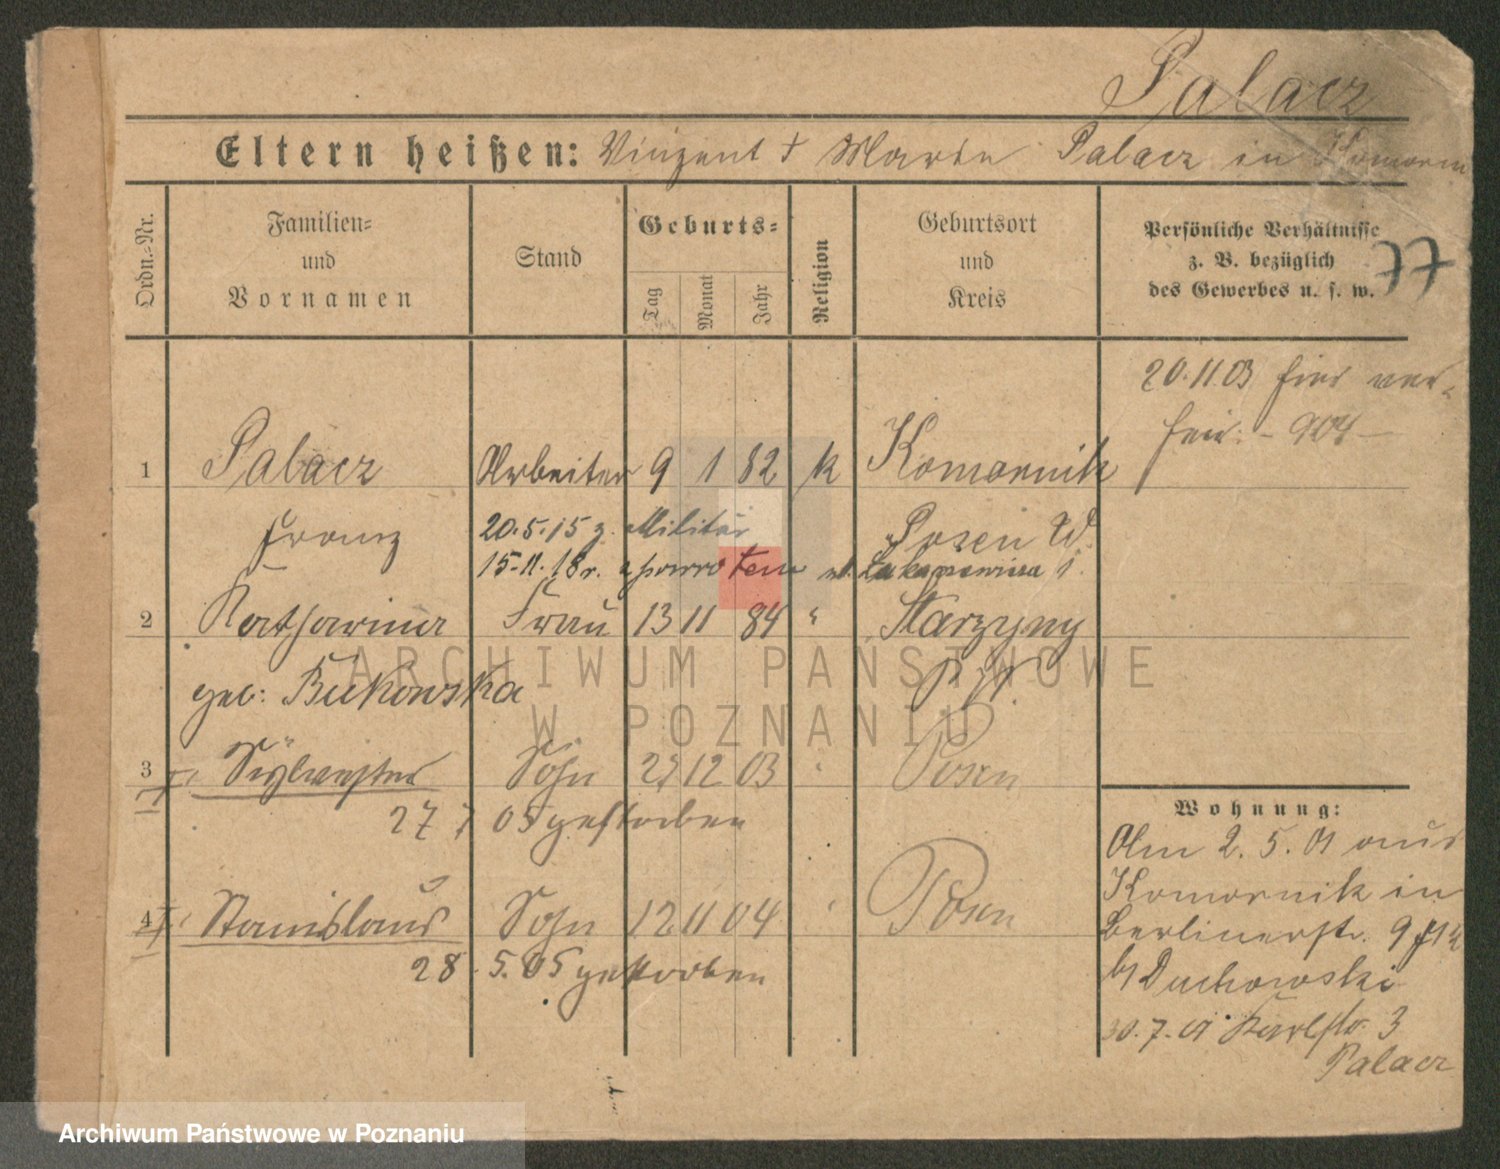 Palacz
Eltern heißen: Vinzent + Marie Palacz in Komorn
Ordn.-Nr.
Familien- und Vornamen
Stand
Geburts-
Tag
Monat
Jahr
Religion
Geburtsort und Kreis
Persönliche Verhältnisse
z. B. bezüglich
des Gewerbes u. s. w.
77
20.11.03 hier ver-
heir. - 904 -
1 Palacz Arbeiter 9 1 82 k Komornik
Franz 20.5.15 z. Militär Posen W.
15.11.18 r.
2 Katharina Frau 13 11 84 " Starzyny
geb: Bukowska P. W.
3 Sylvester Sohn 27 12 03 " Posen
27 7 05 gestorben
4 Stanislaus Sohn 12 11 04 " Posen
28. 5. 05 gestorben
Wohnung:
Am 2. 5. 01 aus
Komornik in
Berlinerstr. 9
b/ Duchowski
30. 7. 01 Karlstr. 3
Palacz
ARCHIWUM PAŃSTWOWE
W POZNANIU
Archiwum Państwowe w Poznaniu